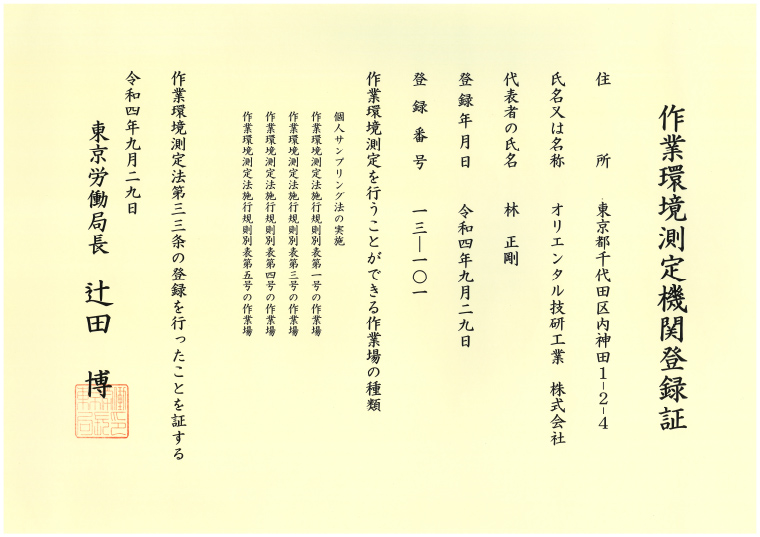 作業環境測定機関登録証
住所 東京都千代田区内神田1-2-4
氏名又は名称 オリエンタル技研工業 株式会社
代表者の氏名 林 正剛
登録年月日 令和四年九月二九日
登録番号 一三―一〇一
作業環境測定を行うことができる作業場の種類
個人サンプリング法の実施
作業環境測定法施行規則別表第一号の作業場
作業環境測定法施行規則別表第三号の作業場
作業環境測定法施行規則別表第四号の作業場
作業環境測定法施行規則別表第五号の作業場
作業環境測定法第三三条の登録を行ったことを証する
令和四年九月二九日
東京労働局長 辻田 博